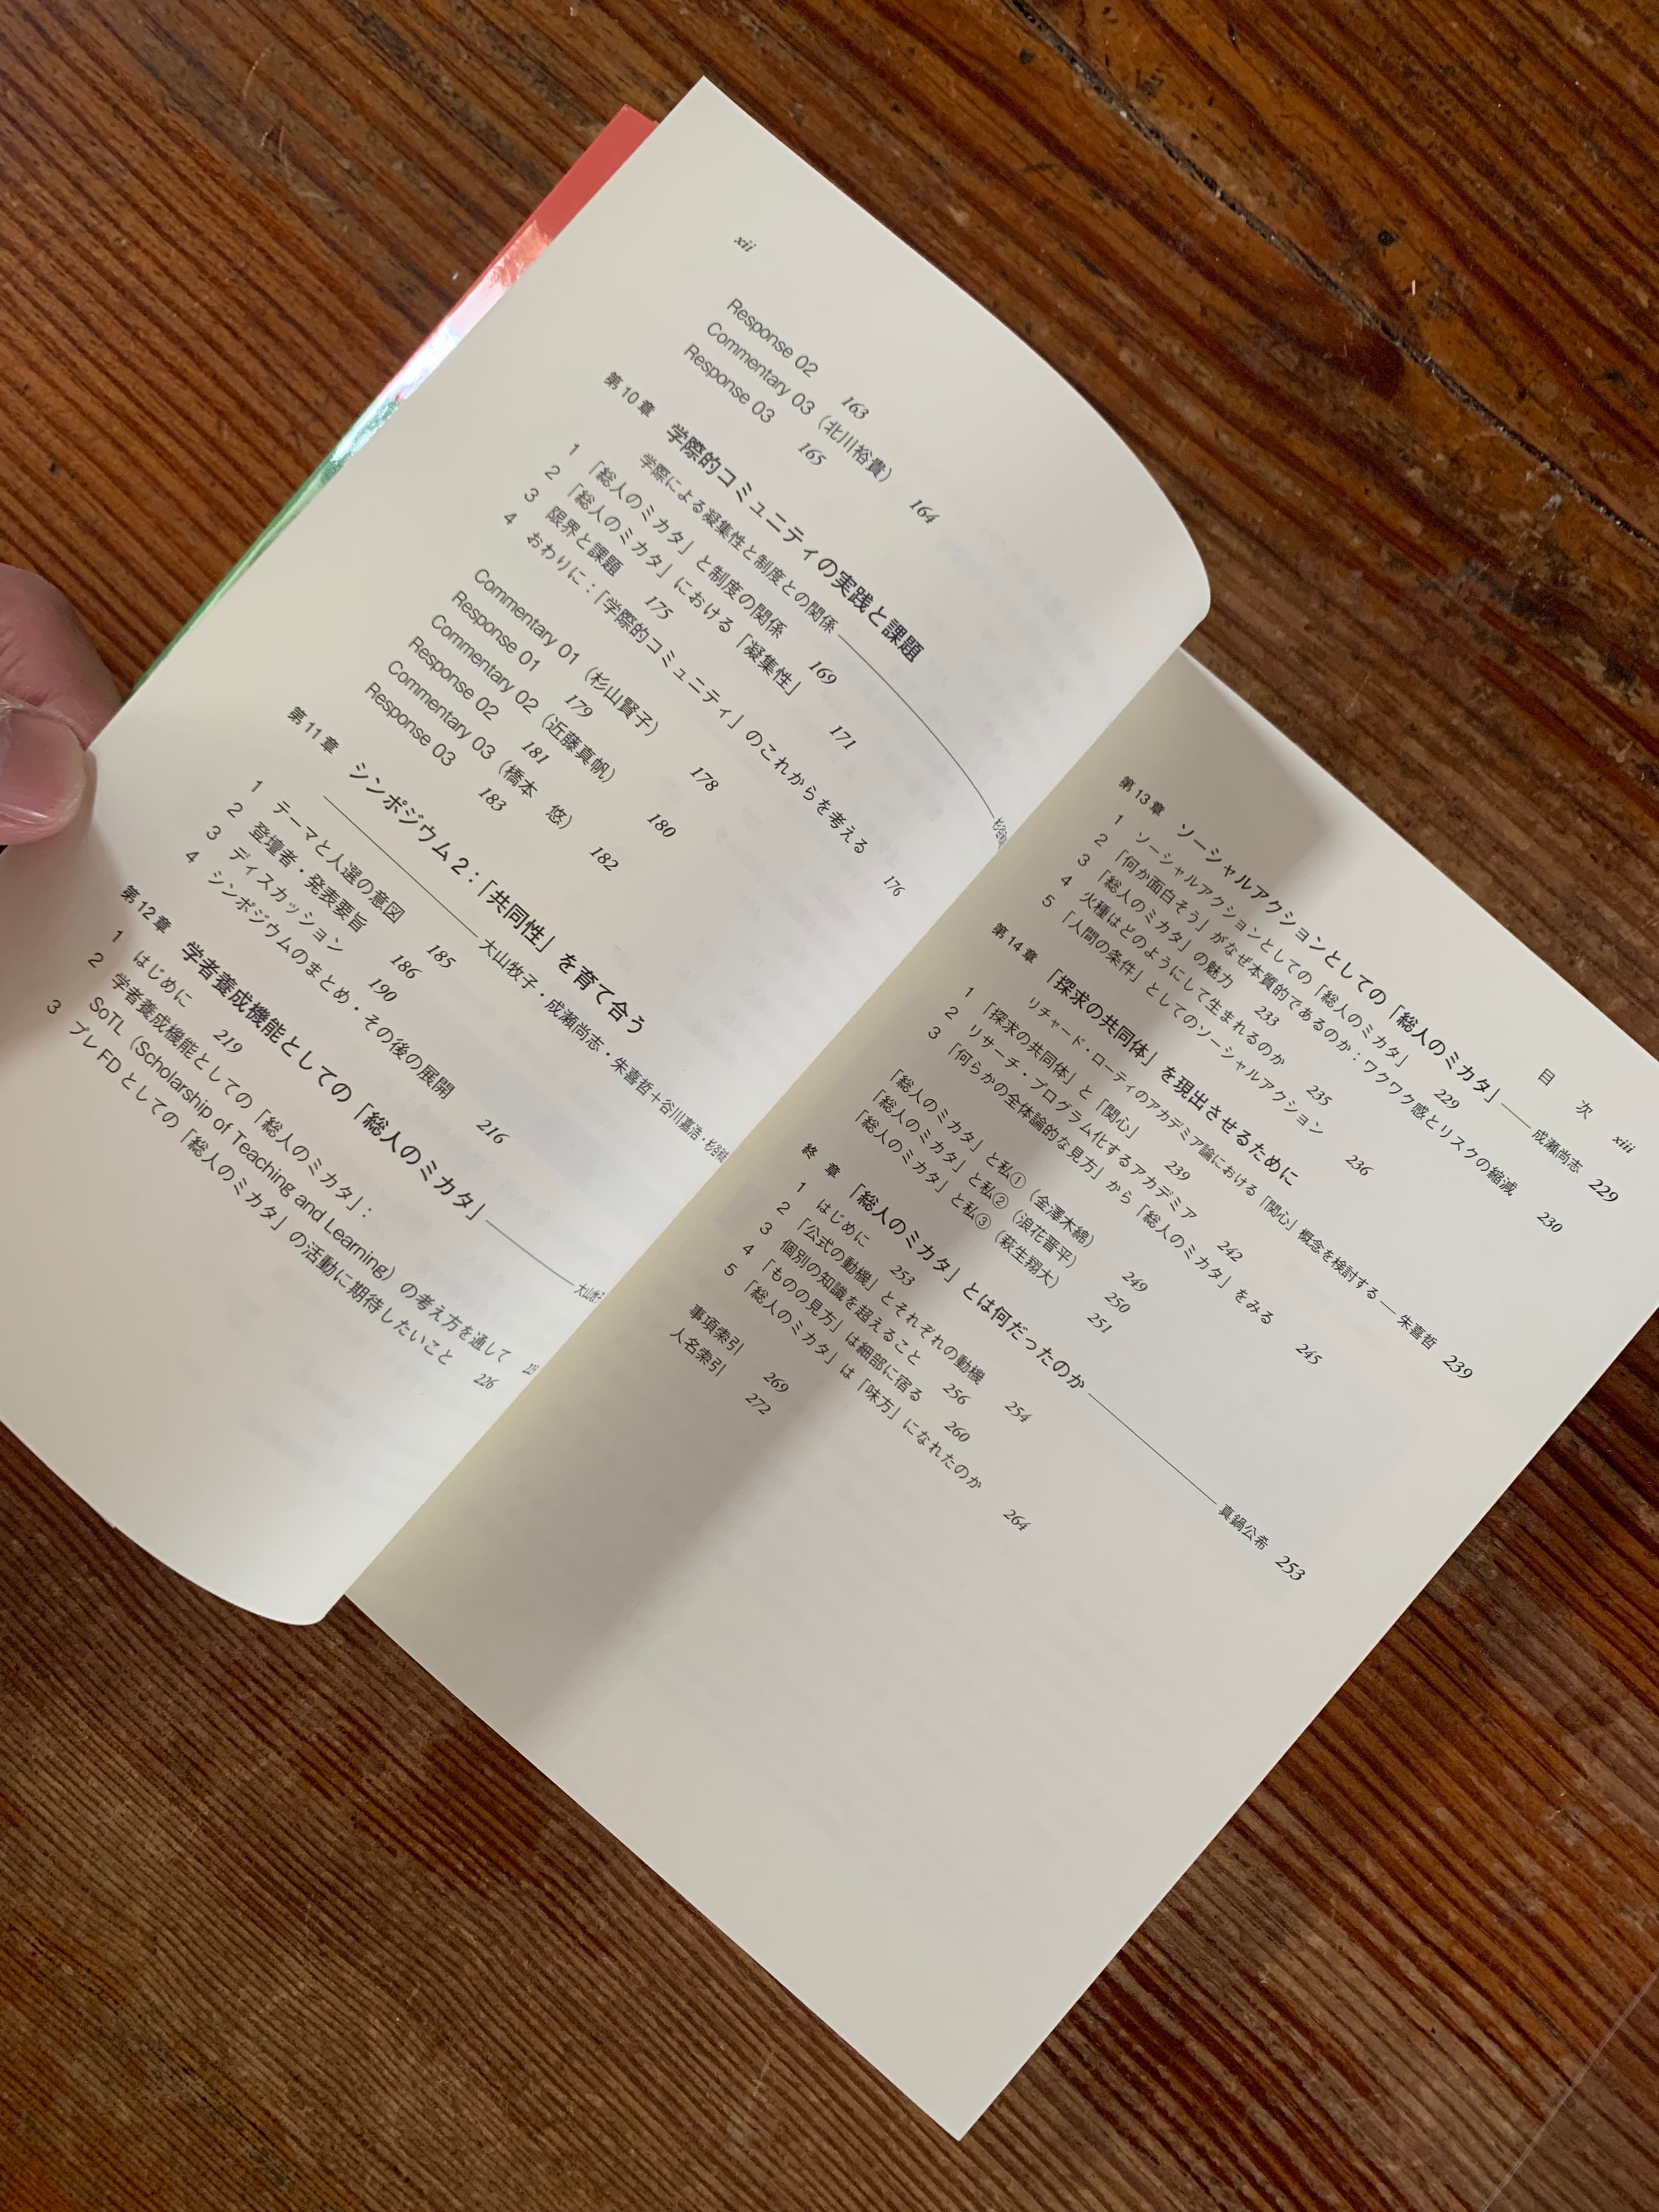 xii
Response 02 163
Commentary 03（北川裕貴） 164
Response 03 165
第10章 学際的コミュニティの実践と課題
学際による凝集性と制度との関係
1 「総人のミカタ」と制度の関係 169
2 「総人のミカタ」における「凝集性」 171
3 限界と課題 175
4 おわりに：「学際的コミュニティ」のこれからを考える 176
Commentary 01（杉山賢子） 178
Response 01 179
Commentary 02（近藤真帆） 180
Response 02 181
Commentary 03（橋本 悠） 182
Response 03 183
第11章 シンポジウム2：「共同性」を育て合う
大山牧子・成瀬尚志・朱喜哲＋谷川嘉浩・杉谷
1 テーマと人選の意図 185
2 登壇者・発表要旨 186
3 ディスカッション 190
4 シンポジウムのまとめ・その後の展開 216
第12章 学者養成機能としての「総人のミカタ」 大山牧子
1 はじめに 219
2 学者養成機能としての「総人のミカタ」：
SoTL（Scholarship of Teaching and Learning）の考え方を通して
3 プレFDとしての「総人のミカタ」の活動に期待したいこと 226
目 次 xiii
第13章 ソーシャルアクションとしての「総人のミカタ」 成瀬尚志 229
1 ソーシャルアクションとしての「総人のミカタ」 229
2 「何か面白そう」がなぜ本質的であるのか：ワクワク感とリスクの縮減 230
3 「総人のミカタ」の魅力 233
4 火種はどのようにして生まれるのか 235
5 「人間の条件」としてのソーシャルアクション 236
第14章 「探求の共同体」を現出させるために
リチャード・ローティのアカデミア論における「関心」概念を検討する 朱喜哲 239
1 「探求の共同体」と「関心」 239
2 リサーチ・プログラム化するアカデミア 242
3 「何らかの全体論的な見方」から「総人のミカタ」をみる 245
「総人のミカタ」と私①（金澤木綿） 249
「総人のミカタ」と私②（浪花晋平） 250
「総人のミカタ」と私③（萩生翔大） 251
終 章 「総人のミカタ」とは何だったのか 真鍋公希 253
1 はじめに 253
2 「公式の動機」とそれぞれの動機 254
3 個別の知識を超えること 256
4 「ものの見方」は細部に宿る 260
5 「総人のミカタ」は「味方」になれたのか 264
事項索引 269
人名索引 272